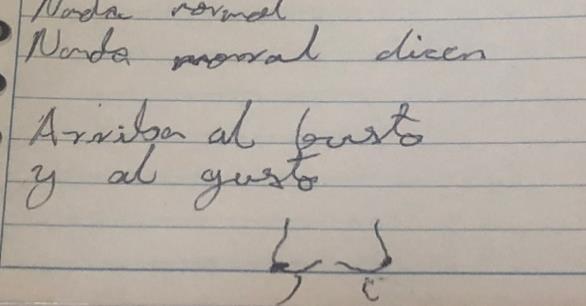 Nada normal
Nada moral dicen
Arriba al busto
y al gusto